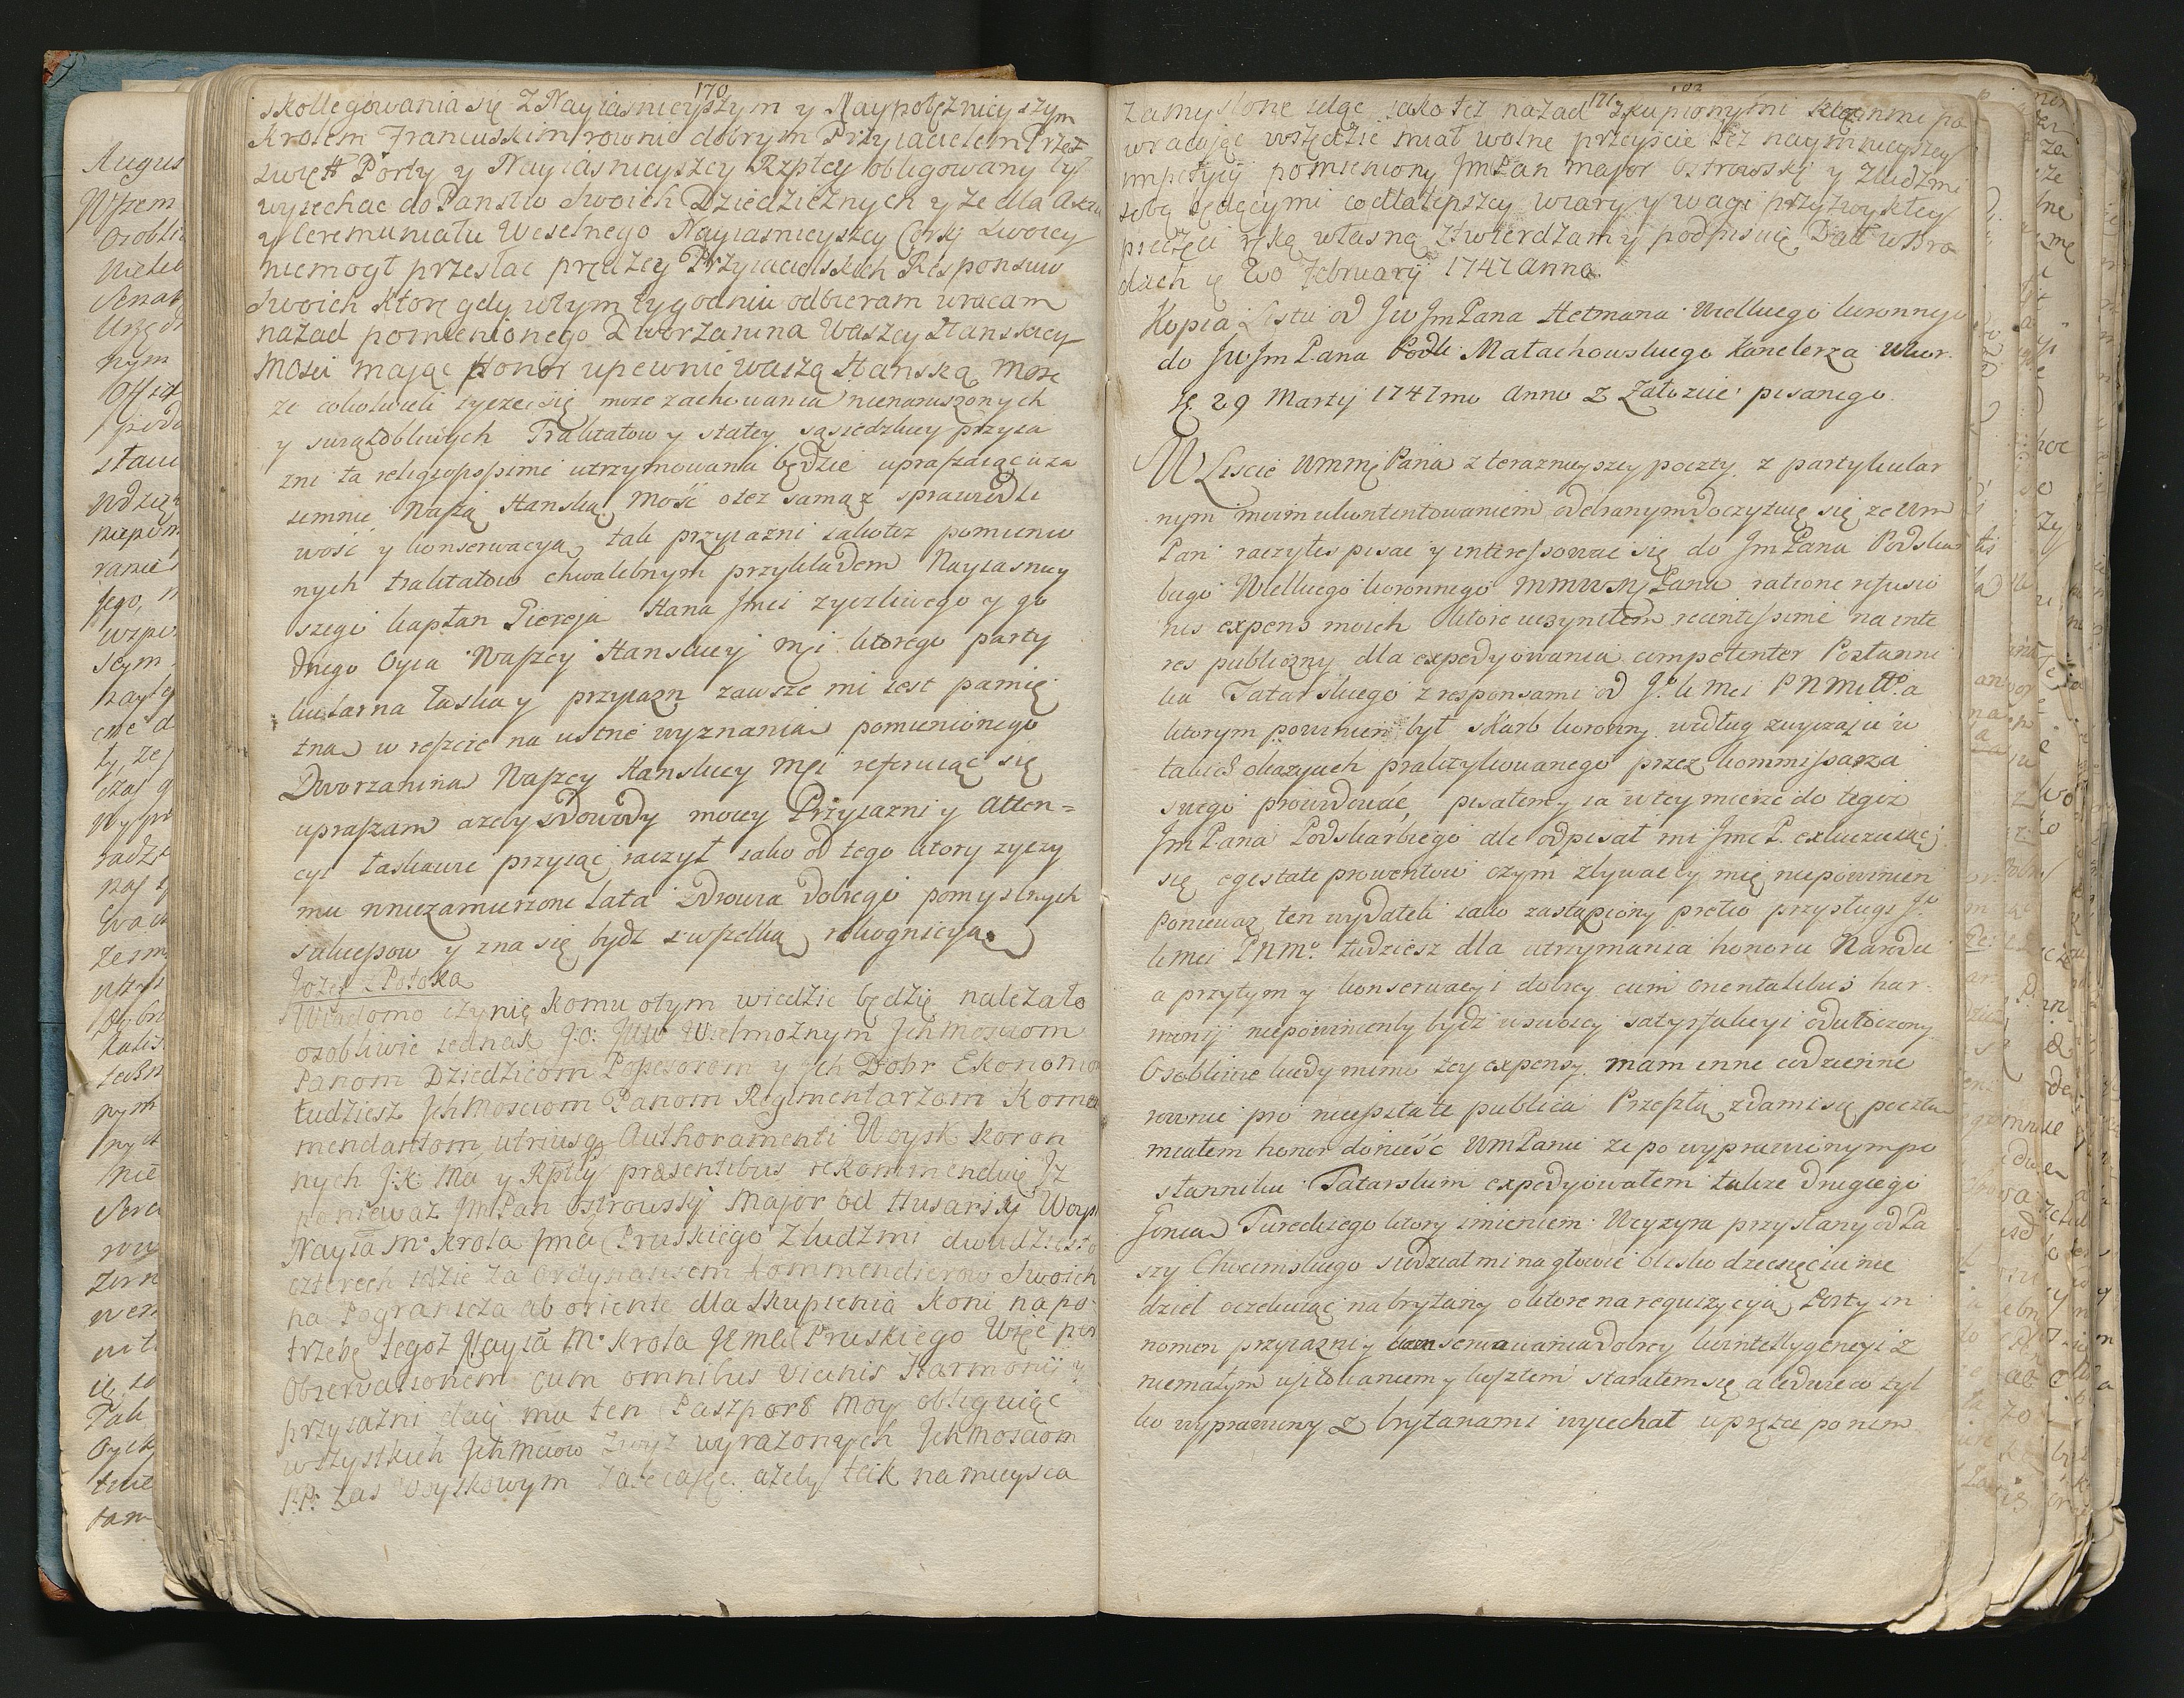 170
skollegowania się z Nayiasnieyszym y Naypotęznieyszym
Krolem Francuskim rownie dobrym Przyiacielem Przes
swięt Porty y Nayiasnieyszey Rzpltey obligowany był
wyiechac do Panstw swoich Dziedzicznych y ze dla
y Ceremoniału Weselnego Nayiasnieyszey Corki swoiey
niemogł przesłac prędzey Przyiacielskich Responsow
swoich ktore gdy wtym tygodniu odbieram wracam
nazad pomienionego Dworzanina Waszey Hanskiey
Mosci maiąc Honor upewnic Waszą Hanską Mosc
ze cokolwiek tyczec się moze zachowania nienaruszonych
y swiątobliwych Traktatow y stałey sąsiedzkiey przyia
zni ta religiosissime utrzymowana będzie upraszaiąc za
iemnie Waszą Hanską Mość otez samąz sprawiedli
wość y konserwacyą tak przyiazni iakotez pomienio
nych traktatow chwalebnym przykładem Nayiasniey
szego kapłan Giereja Hana Jmci zyczliwego y go
dnego Oyca Waszey Hanskiey Mci ktorego party
kularna łaska y przyiazn zawsze mi iest pamię
tna w reszcie na ustne wyznania pomienionego
Dworzanina Waszey Hanskiey Mci referuiąc się
upraszam azeby Dowody moiey Przyiazni y Atten=
cyi łaskawie przyiąc raczył iako od tego ktory zyczy
mu nniezamierzone Lata Zdrowia dobrego pomyslnych
sukcessow y zna się bydz z wszelką rekognicyą
Jozef Potocki
Wiadomo czynię Komu otym wiedzic będzie należało
osobliwie iednak J:O: JWW Wielmożnym Ichmosciom
Panom Dziedzicom Possesorom y Ich Dobr Ekonomom
tudziesz Ichmosciom Panom Regimentarzom Kom
mendantom utriusq Authoramenti Woysk Koron
nych J:K: Ma y Rpltey praesentibus rekommenduię Iz
poniewaz JmPan Ostrowsky Major od Husarsky Woysk
Nayia Mo Krola Jma Pruskiego z ludzmi dwudziesto
czterech idzie za ordynansem Kommendierow swoich
na Pogranicza ab oriente dla skupienia Koni na po
trzebę tegoz Nayia Mo Krola JEmci Pruskiego Więc per
Observationem cum omnibus Vicinis Harmonij y
przyiazni daię mu ten Paszport Moy obliguiąc
wszystkich Ichmciow zwyz wyrazonych Ichmosciom
P:P: zas Woyskowym zalecaiąc azeby tak na mieysca
171
zamyslone idąc iako tez nazad zkupionymi końmi po
wracaiąc wszędzie miał wolne przeyscie bez naymnieyszey
impetycij pomieniony JmPan major Ostrowski y zludzmi
sobą będącymi co dla lepszey wiary y wagi przyzwykłey
pieczęci ręką własną stwierdzam y podpisuię Dat w Bro
dach d 2do Februarij 1747 Anno
Kopia Listu od JW JmPana Hetmana Wielkiego koronnego
do JW JmPana Małachowskiego Kanclerza Wkor.
d 29 Martij 1747mo Anno z Załozic pisanego.
W Liscie WmmęPana z teraznieyszey poczty z partykular
nym moim ukontentowaniem odebranym doczytuię się ze Wm
Pan raczyłes pisac y interessowac się do JmPana Podskar
biego Wielkiego koronnego mmwMPana ratione refusio
nis expens moich ktore uczyniłem recentissime na inte
res publiczny dla expedyowania competenter Posłanni
ka Tatarskiego z responsami od Jo k Mci PNMiłło a
ktorym powinien był skarb koronny według zwyczaju w
takich okazyach praktykowanego przez kommissarza
swego prowidować, pisałem y ia w tey mierze do tegoz
JmPana Podskarbiego ale odpisał mi Jmc P. exkuzuiąc
się egestate prowentow czym zbywac by mię niepowinien
Poniewaz ten wydatek iako zastąpiony pretio przysługi Jo
k Mci PNMo tudziesz dla utrzymania honoru Narodu
a przytym y konserwacyi dobrey cum orientalibus har
monij niepowinienby bydz w swoiey satysfakcyi odwłoczony
Osobliwie kiedy mimo tey expensy mam inne codzienne
rownie pro necessitate publica Przeszłą zdami się pocztą
miałem honor donieść WmPanu ze po wyprawionym po
słanniku Tatarskim expedyowałem takze drugiego
Gonca Tureckiego ktory imieniem Wezyra przysłany od Pa
szy Chocimskiego siedział mi na głowie blisko dziesięciu nie
dziel oczekuiąc na brytany o ktore na requizycyą Porty in
nomen przyiazni y konserwowania dobrey kointelligencyi z
niemałym usiłowaniem y kosztem starałem się a ledwie co tyl
ko wyprawiony z brytanami wyiechał wprędce po nim